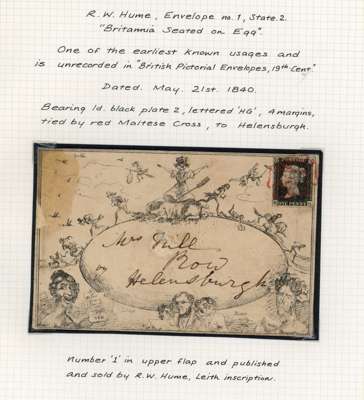 R.W. Hume, Envelope no.1, State.2.
"Britannia Seated on Egg".
One of the earliest known usages and
is unrecorded in "British Pictorial Envelopes, 19th Cent."
Dated. May. 21st. 1840.
Bearing 1d. black plate 2, lettered 'HG', 4 margins,
tied by red Maltese Cross, to Helensburgh.
Mrs
Row
Helensburgh
Number '1' in upper flap and published
and sold by R.W. Hume, Leith inscription.